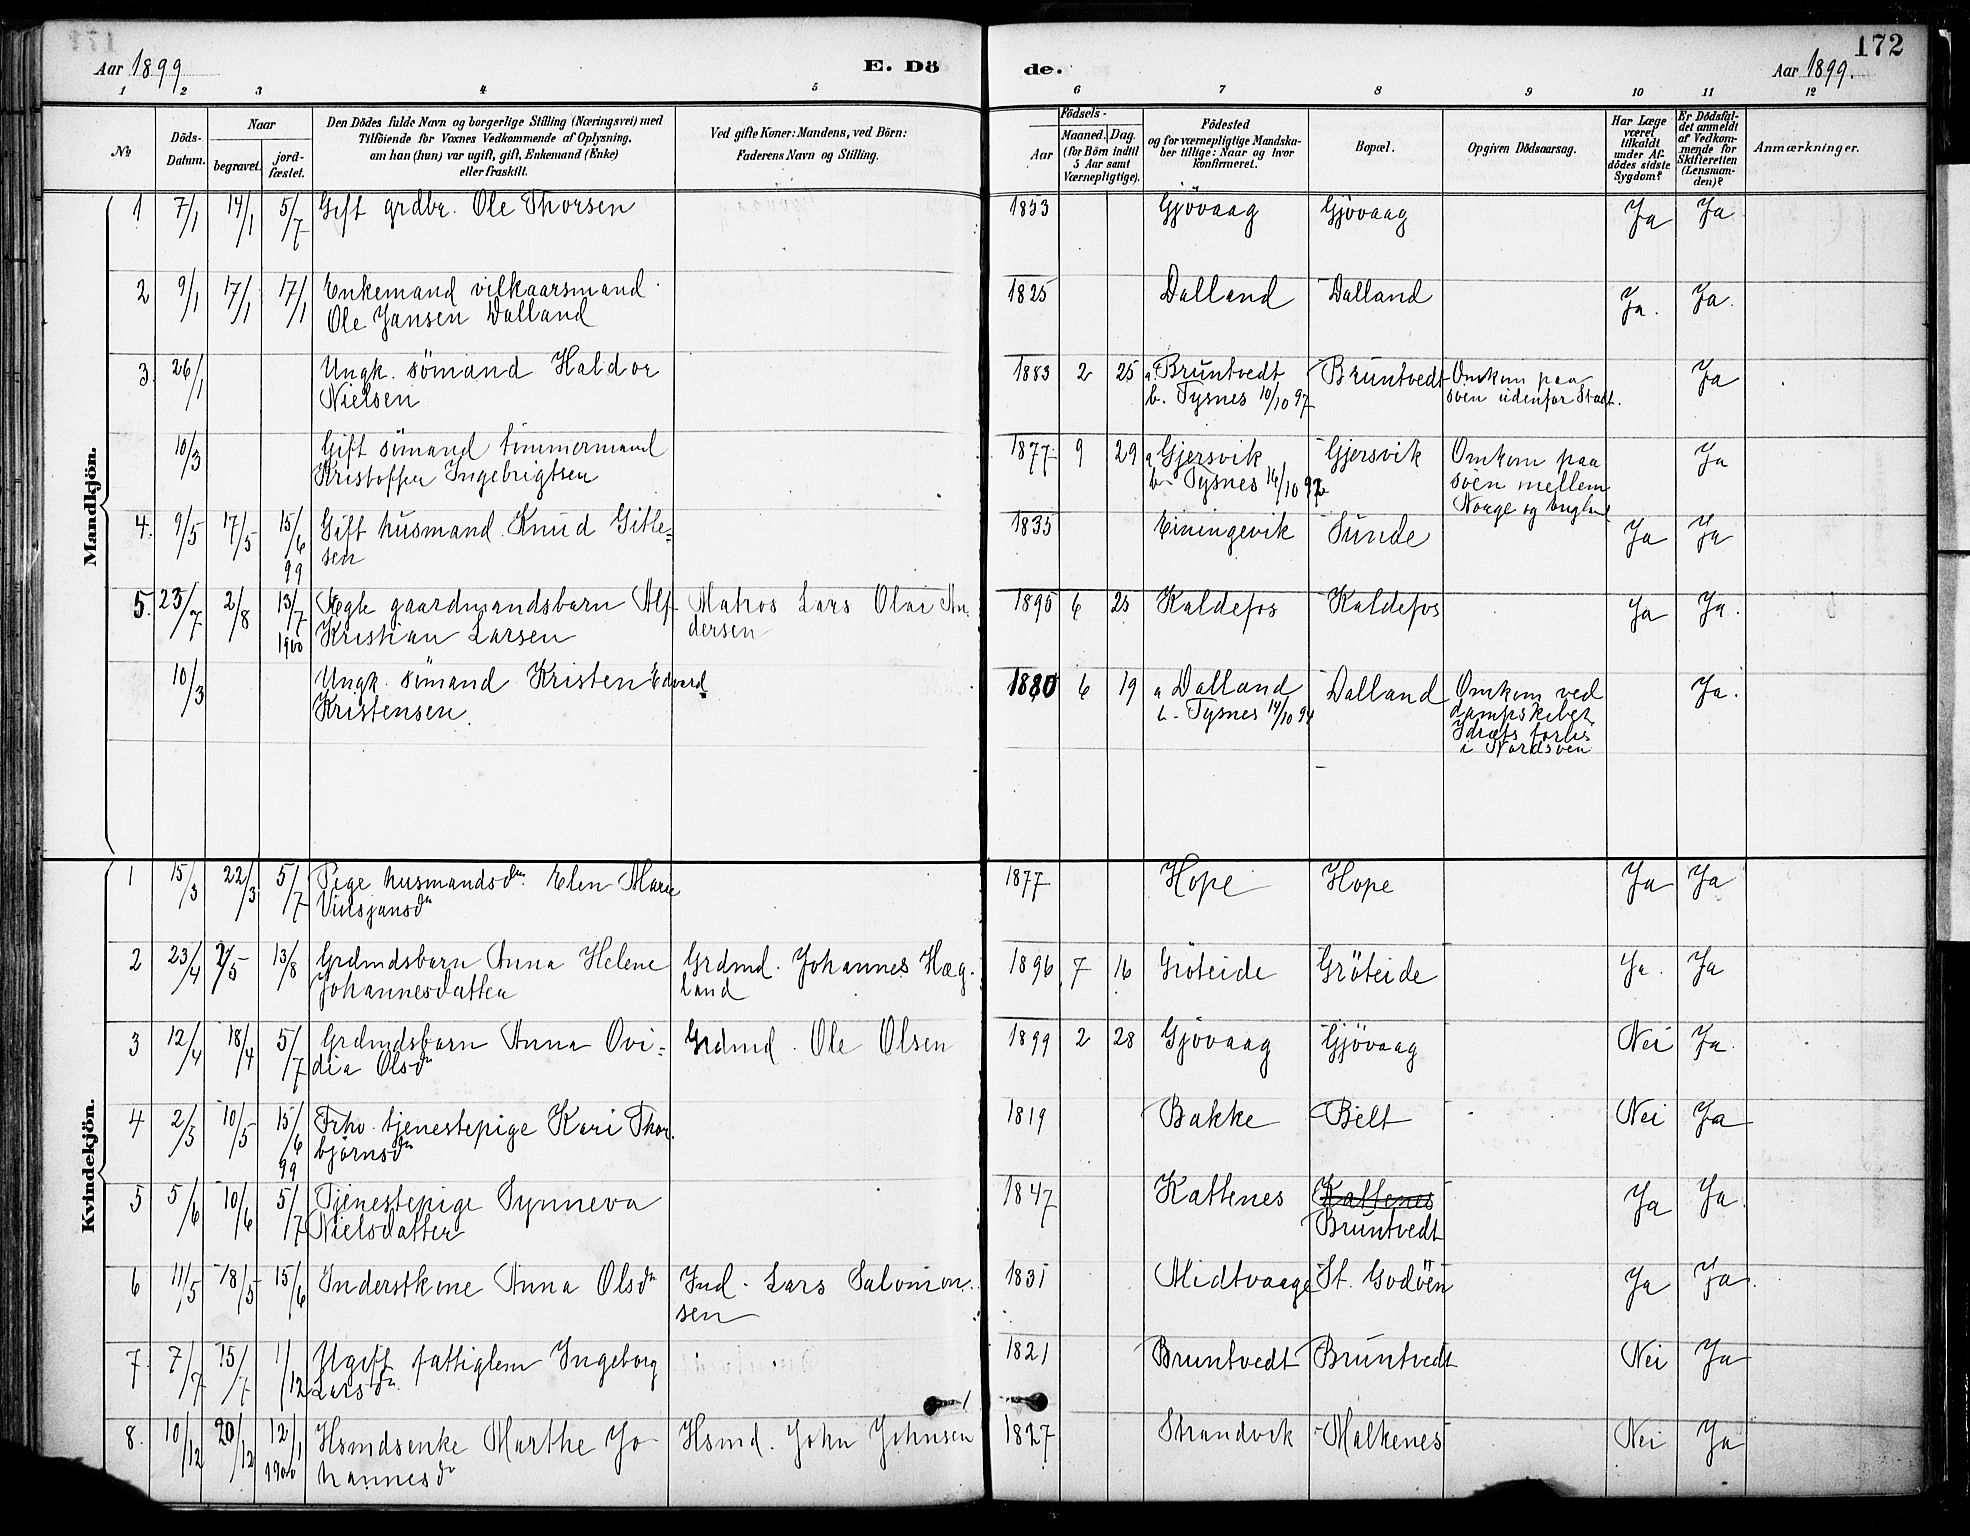 172
Aar 1899
E. Dö
de.
Aar 1899.
1 2 3 4 5
6 7 8 9 10 11 12
No
Döds-Datum.
Naar
begravet.
jord-fæstet.
Den Dödes fulde Navn og borgerlige Stilling (Næringsvei) med
Tilföiende for Voxnes Vedkommende af Oplysning,
om han (hun) var ugift, gift, Enkemand (Enke)
eller fraskilt.
Ved gifte Koner: Mandens, ved Börn:
Faderens Navn og Stilling.
Födsels-
Aar
Maaned. Dag.
(for Börn indtil
5 Aar samt
Værnepligtige).
Födested
og for værnepligtige Mandska-
ber tillige: Naar og hvor
konfirmeret.
Bopæl.
Opgiven Dödsaarsag.
Har Læge
været
tilkaldt
under Af-
dödes sidste
Sygdom?
Er Dödsfal-
det anmeldt
af Vedkom-
mende for
Skifteretten
(Lensman-
den)?
Anmærkninger.
Mandkjön.
1 7/1 14/1 5/7 Gift grdbr. Ole Thorsen 1853 Gjövaag Gjövaag Ja Ja
2 9/1 17/1 17/1 Enkemand vilkaarsmand 1825 Dalland Dalland Ja. Ja.
Ole Jansen Dalland
3. 26/1 Ungk. sömand Haldor 1883 2 25 a. Bruntvedt Bruntvedt Omkom paa Ja
Nielsen b. Tysnes 10/10 97 söen udenfor Stadt.
10/3 Gift sömand timmermand 1877 9 29 a Gjersvik Gjersvik Omkom paa Ja
Kristoffer Ingebrigtsen b. Tysnes 16/10 92 söen mellem
Norge og Engl
4. 9/5 17/5 15/6 99 Gift husmand Knud Gitle= 1835 Einingevik Sunde Ja Ja
sen
5. 23/7 2/8 13/7 1900 Ægte gaardmandsbarn Alf Matros Lars Olai An- 1895 6 25 Kaldefos Kaldefos Ja Ja.
Kristian Larsen dersen
10/3 Ungk. sömand Kristen Edvard 1880 6 19 a Dalland Dalland Omkom ved Ja.
Kristensen. b. Tysnes 14/10 94 dampskibet
Idræts forlis
i Nordsöen
Kvindekjön.
1 15/3 22/3 5/7 Pige husmandsdr. Elen Marie 1877 Hope Hope Ja Ja
2 23/4 2/5 13/8 Grdmdsbarn Anna Helene Grdmd. Johannes Hæg- 1896 7 16 Gröteide Gröteide Ja. Ja
Johannesdatter land
3 12/4 18/4 5/7 Grdmdsbarn Anna Ovi= Grdmd. Ole Olsen 1899 2 28 Gjövaag Gjövaag Nei Ja.
dia Olsdr
4 2/5 10/5 15/6 99 Frhv. tjenestepige Kari Thor- 1819 Bakke Belt Nei Ja
björnsdr
5 5/6 10/6 5/7 Tjenestepige Synneva 1847 Kattenes Kattenes Ja Ja.
Nielsdatter Bruntvedt
6 11/5 18/5 15/6 Inderstkone Anna Olsdr Ind. Lars Salomon- 1831 Midtvaage St. Godöen Ja Ja.
sen
7. 7/7 15/7 1/12 Ugift fattiglem Ingeborg 1821 Bruntvedt Bruntvedt Nei Ja
Larsdr.
8. 10/12 20/12 12/1 1900 Hsmdsenke Marthe Jo- Hsmd. John Johnsen 1827 Strandvik Malkenes Nei Ja
hannesdr